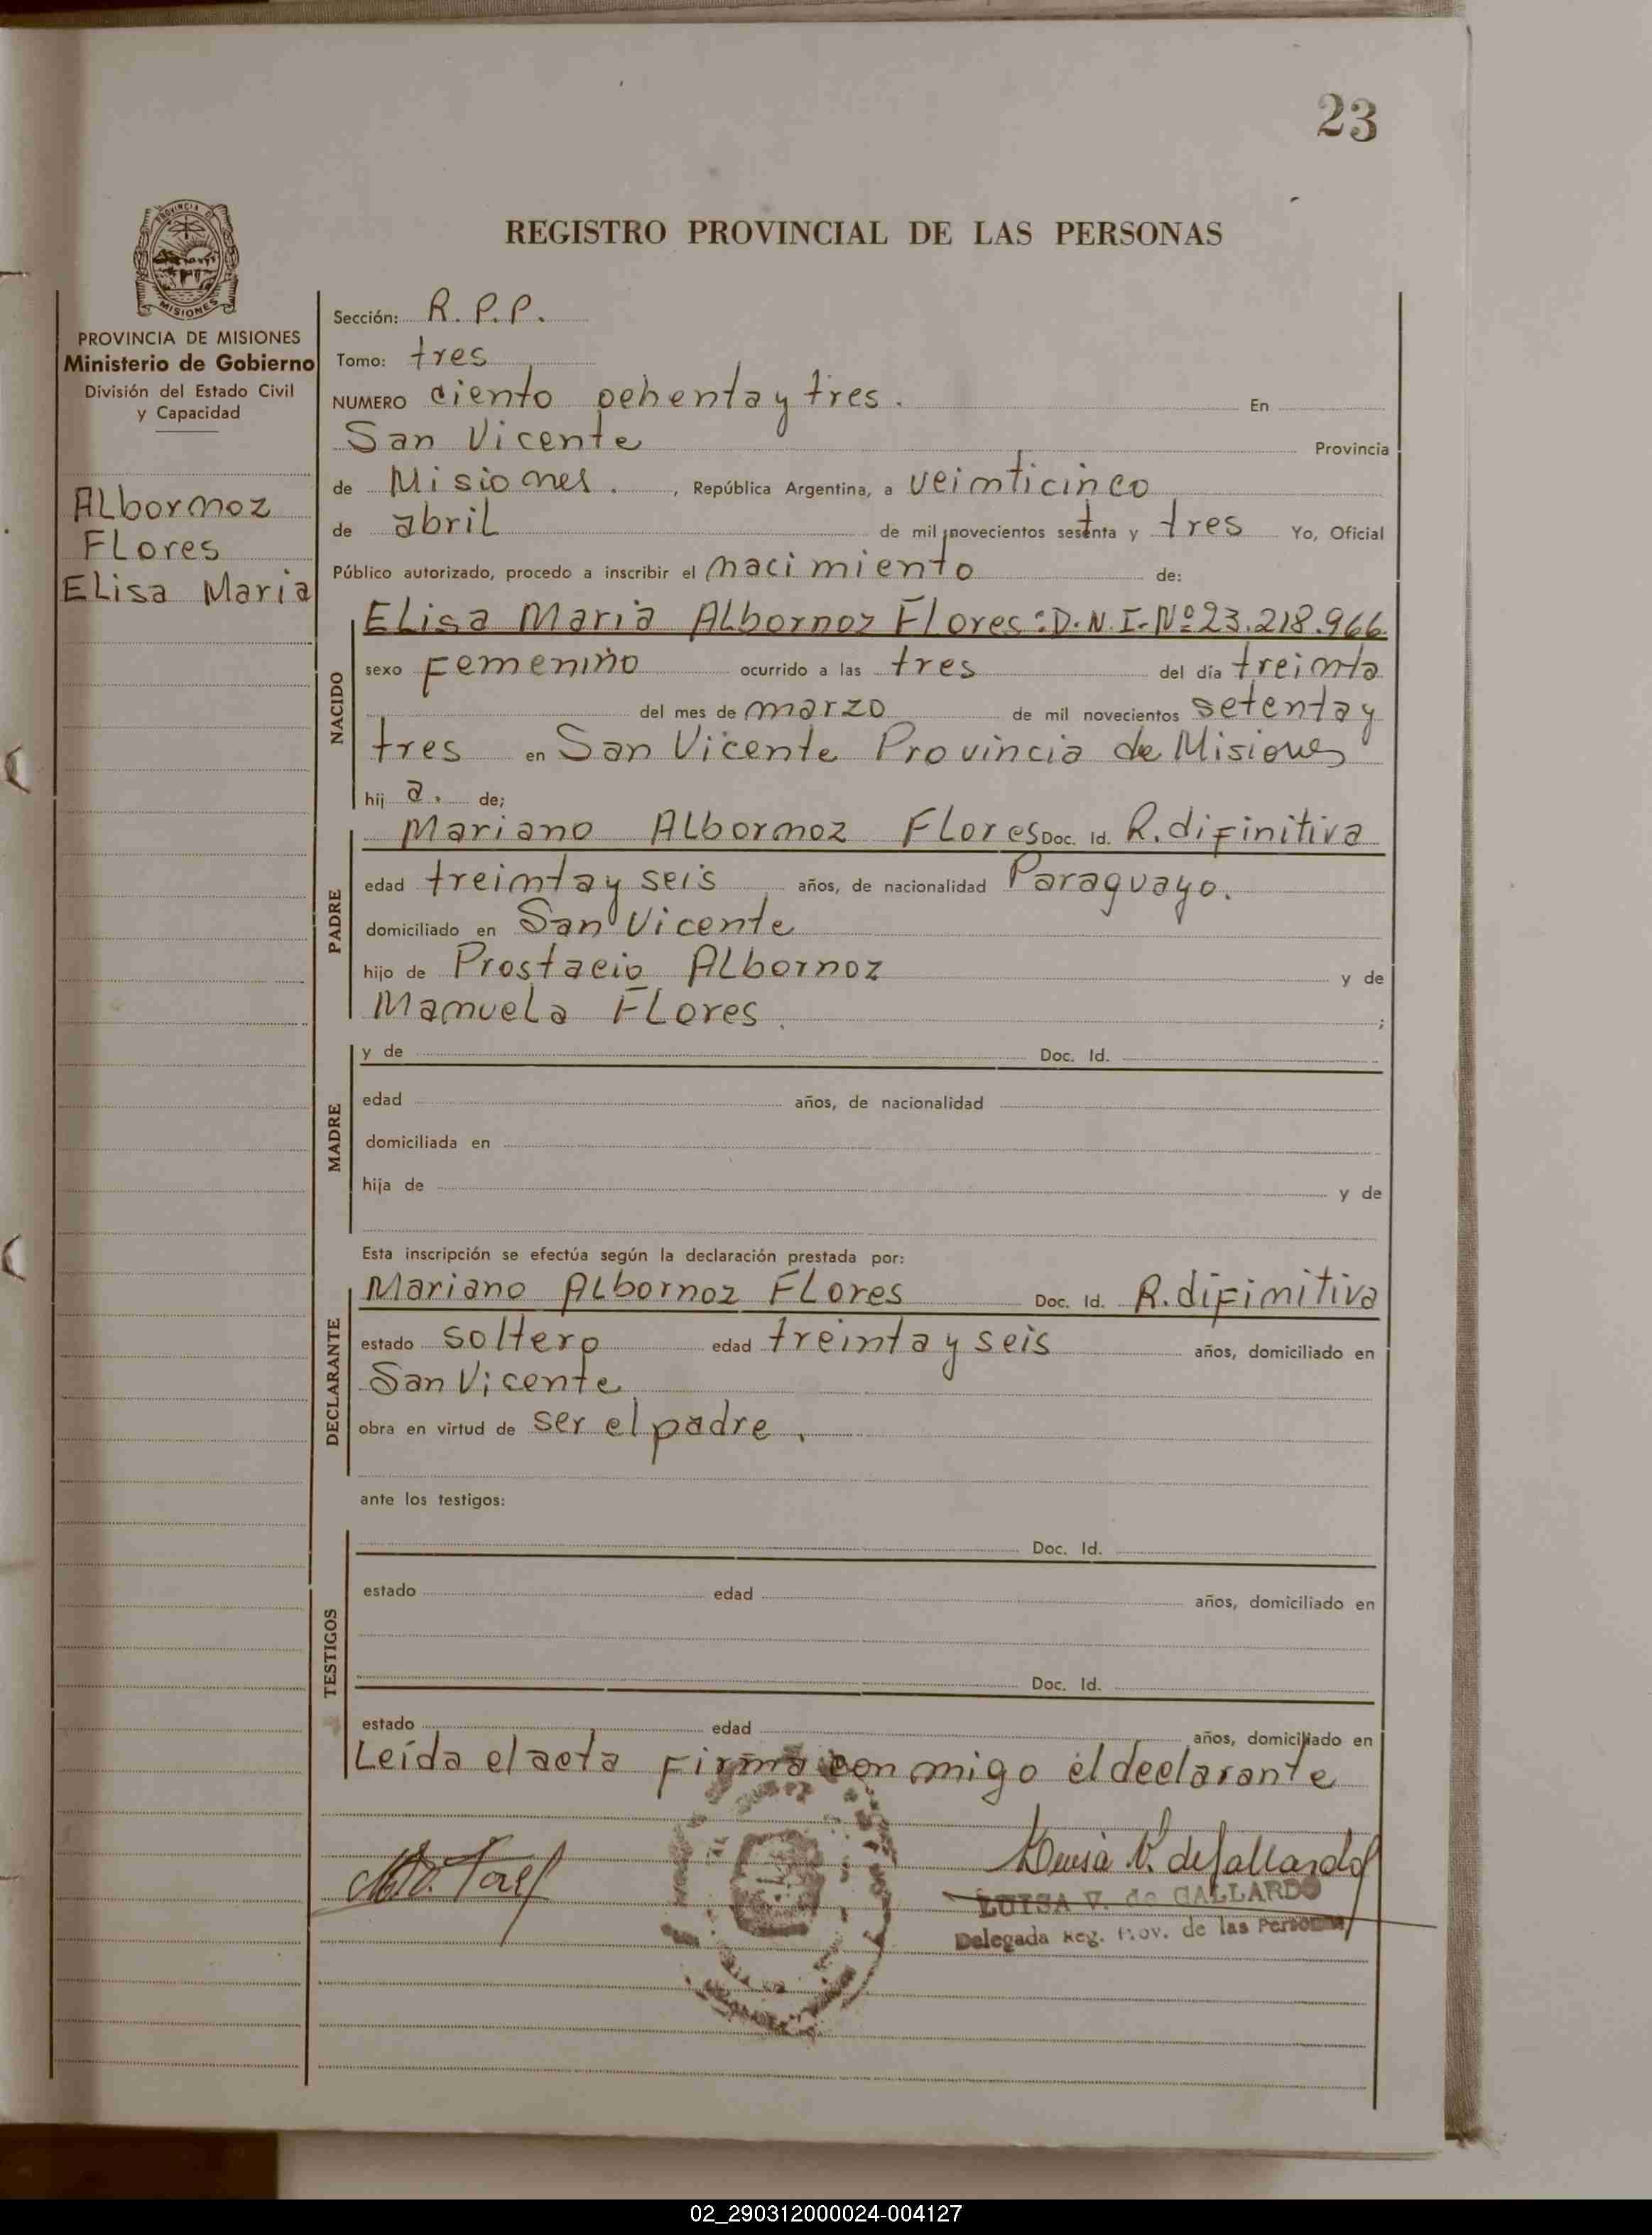 23
REGISTRO PROVINCIAL DE LAS PERSONAS
PROVINCIA DE
MISIONES
PROVINCIA DE MISIONES
Ministerio de Gobierno
División del Estado Civil
y Capacidad
ALbornoz
FLores
ELisa Maria
Sección: R. P. P.
Tomo: tres
NUMERO ciento ochenta y tres. En
San Vicente Provincia
de Misiones. , República Argentina, a veinticinco
de abril de mil novecientos setenta y tres Yo, Oficial
Público autorizado, procedo a inscribir el nacimiento de:
NACIDO
ELisa Maria ALbornoz Flores: D.N.I. Nº 23.218.966
sexo Femenino ocurrido a las tres del día treinta
del mes de marzo de mil novecientos setenta y
tres en San Vicente Provincia de Misiones
hij a. de;
PADRE
Mariano ALbornoz FLores Doc. Id. R. difinitiva
edad treinta y seis años, de nacionalidad Paraguayo.
domiciliado en San Vicente
hijo de Prostacio ALbornoz y de
Manuela FLores. ;
MADRE
y de Doc. Id.
edad años, de nacionalidad
domiciliada en
hija de y de
Esta inscripción se efectúa según la declaración prestada por:
DECLARANTE
Mariano ALbornoz FLores Doc. Id. R. difinitiva
estado soltero edad treinta y seis años, domiciliado en
San Vicente
obra en virtud de ser el padre.
ante los testigos:
TESTIGOS
Doc. Id.
estado edad años, domiciliado en
Doc. Id.
estado edad años, domiciliado en
Leída el acta Firma con migo el declarante
Luisa V. de Gallardo
LUISA V. de GALLARDO
Delegada Reg. Prov. de las Personas
02_290312000024-004127